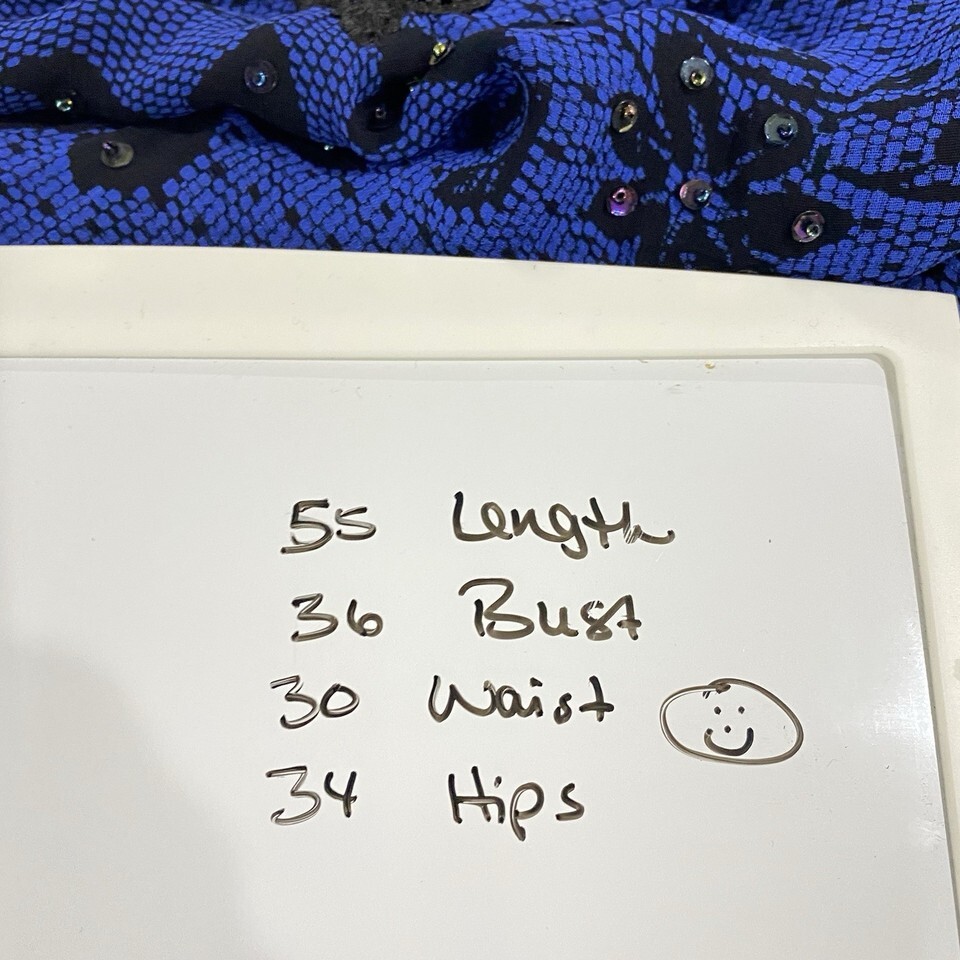 55 Length
36 Bust
30 Waist
34 Hips